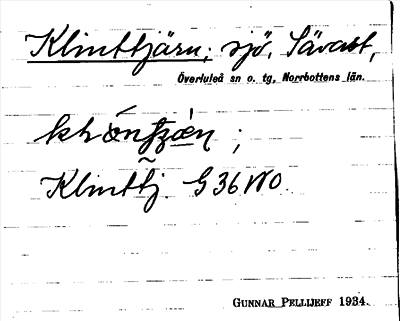 Klinttjärn; sjö, Sävast,
Överluleå sn o. tg, Norrbottens län.
Klinttj. G 36 NO.
GUNNAR PELLIJEFF 1934.